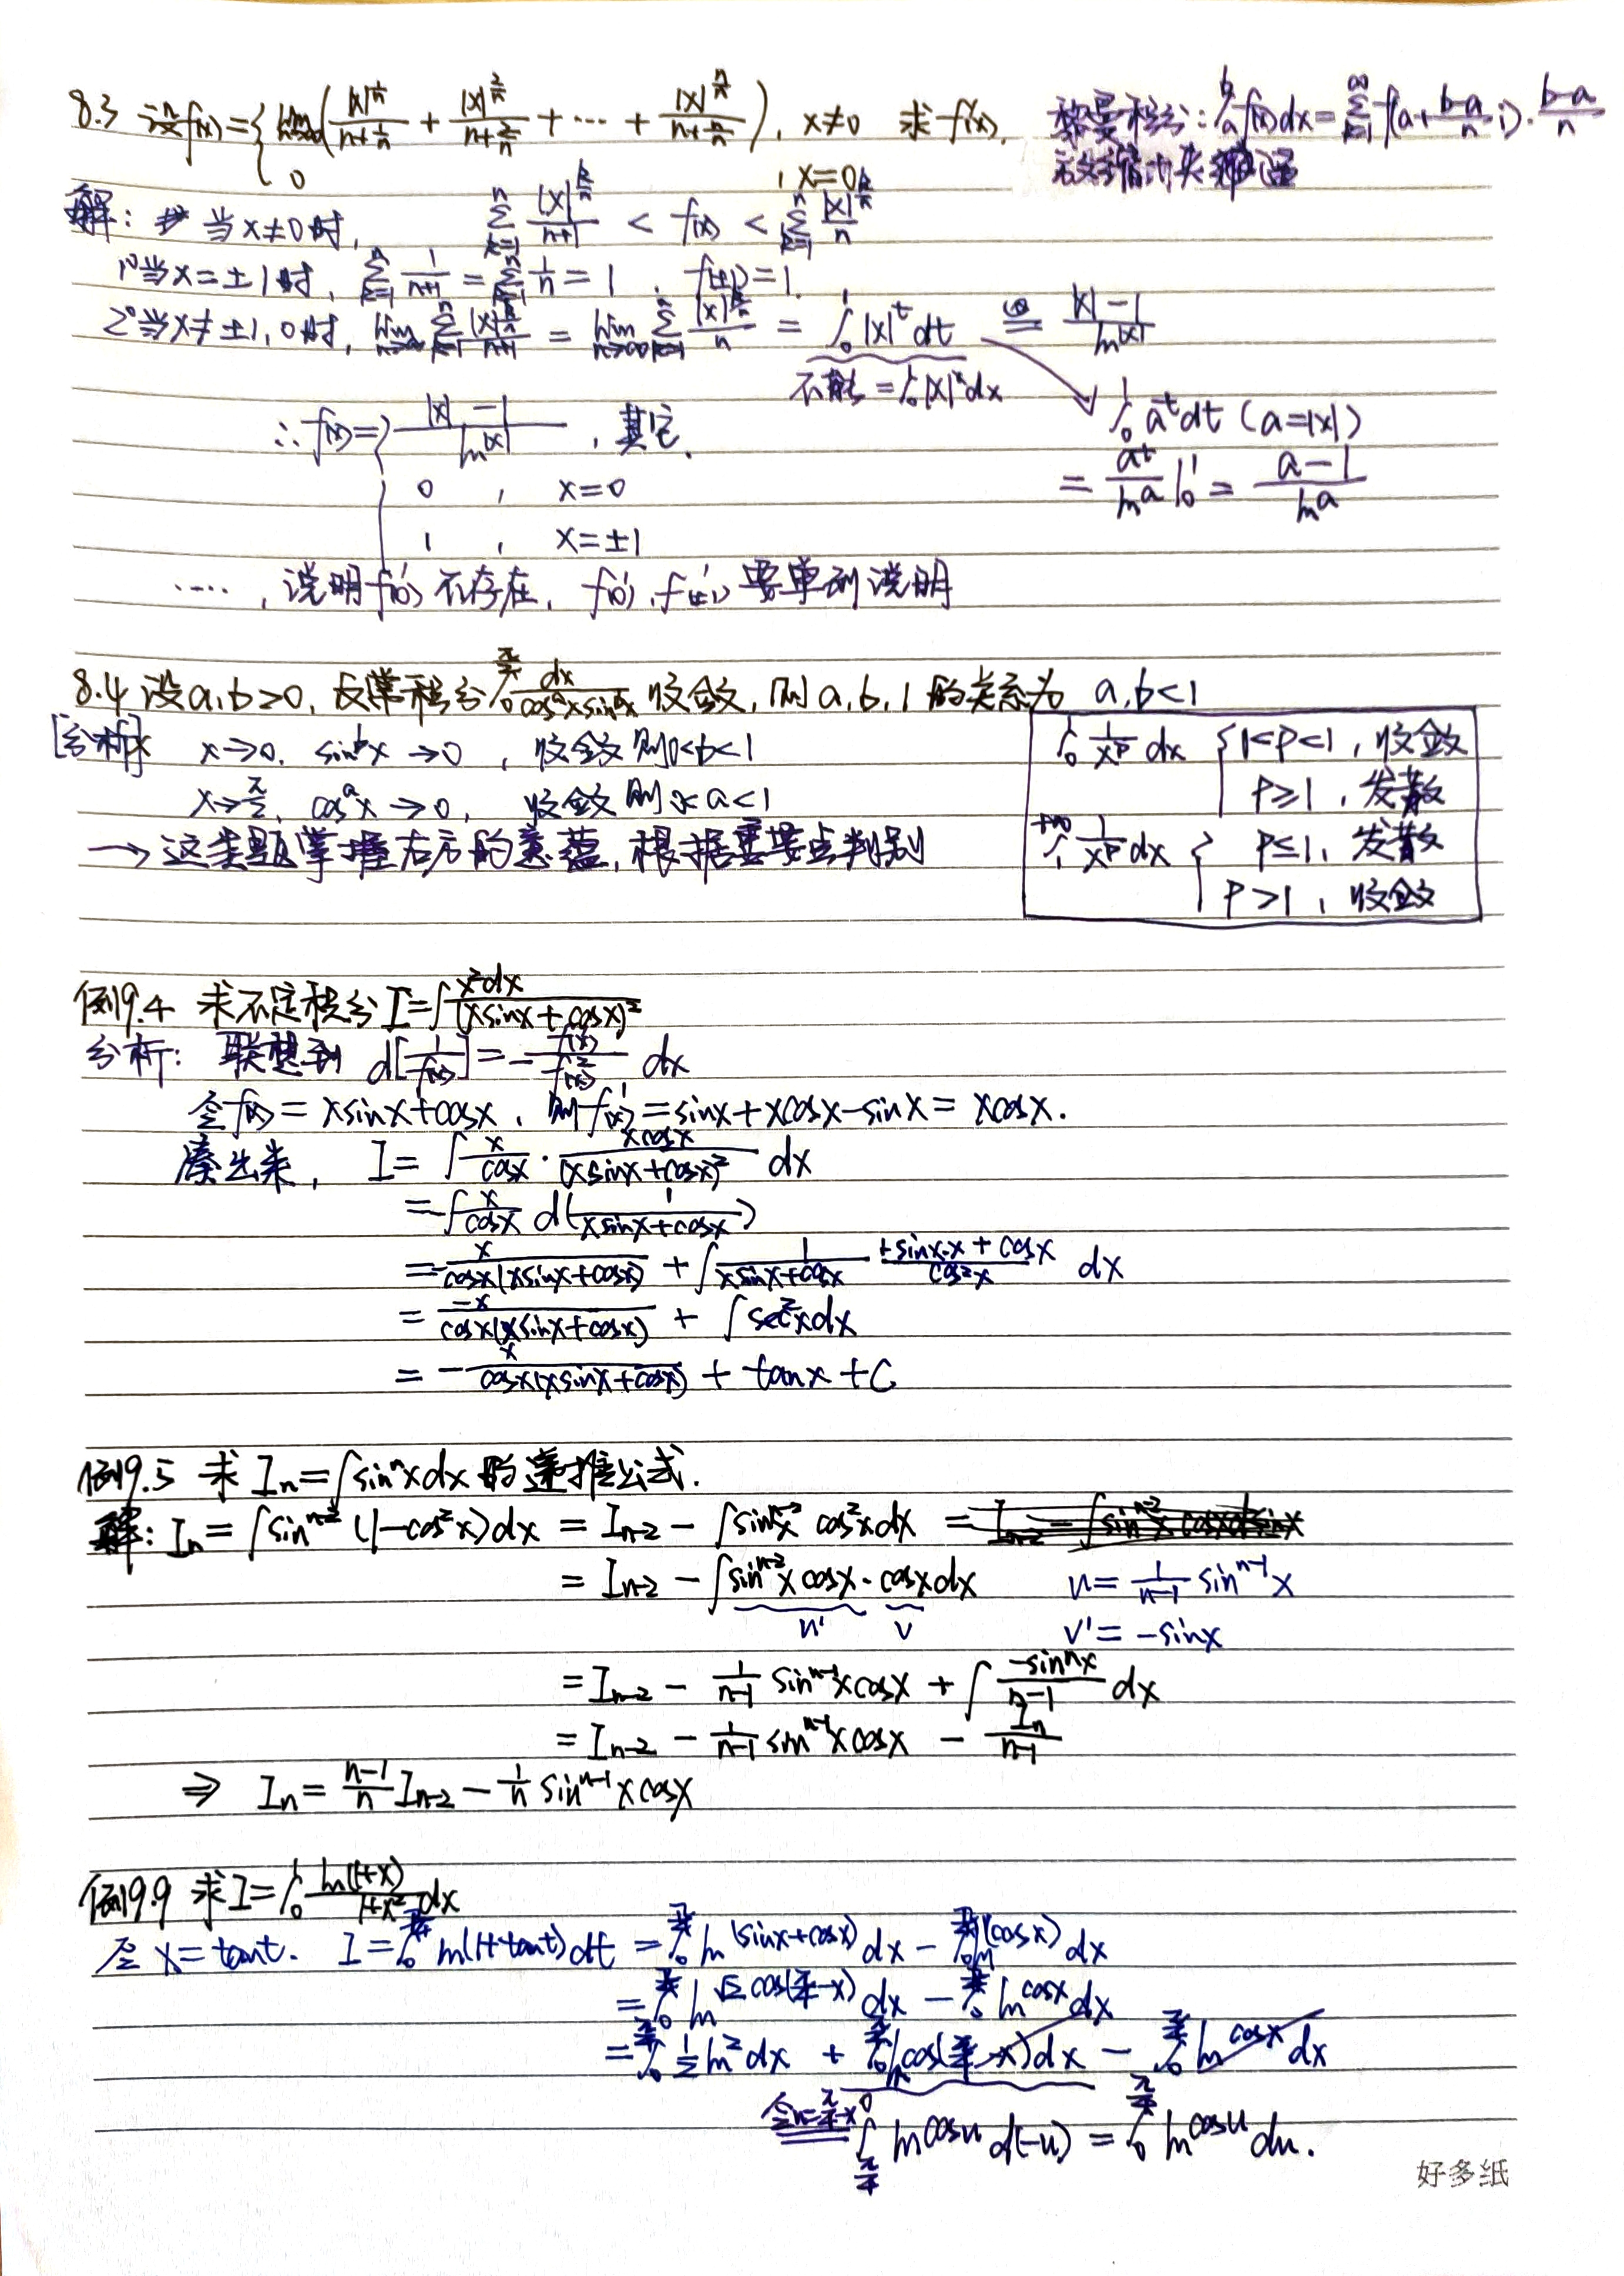 8.3 设f(x)={ lim n→∞ (|x|^{1/n}/(n+1/n) + |x|^{2/n}/(n+2/n) + ⋯ + |x|^{n/n}/(n+n/n)), x≠0 求f'(x).
0 , x=0
黎曼积分: ∫_a^b f(x)dx = Σ_{k=1}^∞ f(a+(b-a)/n i)·(b-a)/n
解: 当x≠0时, Σ_{k=1}^n |x|^{k/n}/(n+1) < f(x) < Σ_{k=1}^n |x|^{k/n}/n
1° 当x=±1时, Σ_{k=1}^n 1/(n+1) = Σ_{k=1}^n 1/n = 1 , f(±1)=1.
2° 当x≠±1,0时, lim_{n→∞} Σ_{k=1}^n |x|^{k/n}/(n+1) = lim_{n→∞} Σ_{k=1}^n |x|^{k/n}/n = ∫_0^1 |x|^t dt = (|x|-1)/ln|x|
不能=∫_0^1 |x|^x dx
∫_0^1 a^t dt (a=|x|)
= a^t/ln a |_0^1 = (a-1)/ln a
∴ f(x)={ (|x|-1)/ln|x| , 其它.
0 , x=0
1 , x=±1
⋯⋯, 说明f'(0)不存在, f'(0), f'(±1)要单列说明
8.4 设a,b>0, 反常积分∫_0^{π/2} dx/(cos^a x sin^b x) 收敛, 则a,b,1的关系为 a,b<1
[分析] x→0, sin^b x→0 , 收敛则0<b<1
x→π/2, cos^a x→0, 收敛则 a<1
→ 这类题掌握右方的意蕴, 根据要点判别
∫_0^1 1/x^p dx { 1<P<1, 收敛
P≥1, 发散
∫_1^{+∞} 1/x^p dx { P≤1, 发散
P>1, 收敛
例9.4 求不定积分 I=∫ x²dx/(xsinx+cosx)²
分析: 联想到 d[1/f(x)] = -f'(x)/f²(x) dx
令f(x)=xsinx+cosx, 则f'(x)=sinx+xcosx-sinx=xcosx.
凑出来, I=∫ x/cosx · xcosx/(xsinx+cosx)² dx
=-∫ x/cosx d(1/(xsinx+cosx))
=-x/(cosx(xsinx+cosx)) + ∫ 1/(xsinx+cosx) · (+sinx·x+cosx)/cos²x dx
= -x/(cosx(xsinx+cosx)) + ∫sec²xdx
= -x/(cosx(xsinx+cosx)) + tanx + C
例9.5 求 I_n=∫sin^n xdx 的递推公式.
解: I_n = ∫sin^{n-2}(1-cos²x)dx = I_{n-2} - ∫sin^{n-2}x cos²xdx = I_{n-2} - ∫sin^{n-2}x cosxdsinx
= I_{n-2} - ∫sin^{n-2}x cosx·cosxdx u=1/(n-1) sin^{n-1}x
u' v v'=-sinx
= I_{n-2} - 1/(n-1) sin^{n-1}xcosx + ∫ -sin^n x/(n-1) dx
= I_{n-2} - 1/(n-1) sin^{n-1}xcosx - I_n/(n-1)
⇒ I_n = (n-1)/n I_{n-2} - 1/n sin^{n-1}xcosx
例9.9 求I=∫_0^1 ln(1+x)/(1+x²) dx
令x=tant. I=∫_0^{π/4} ln(1+tant)dt = ∫_0^{π/4} ln(sinx+cosx)dx - ∫_0^{π/4} ln(cosx)dx
= ∫_0^{π/4} ln √2cos(π/4-x)dx - ∫_0^{π/4} ln cosx dx
= ∫_0^{π/4} ½ln2dx + ∫_0^{π/4} ln cos(π/4-x)dx - ∫_0^{π/4} ln cosx dx
令u=π/4-x ∫_{π/4}^0 ln cosu d(-u) = ∫_0^{π/4} ln cosu du.
好多纸